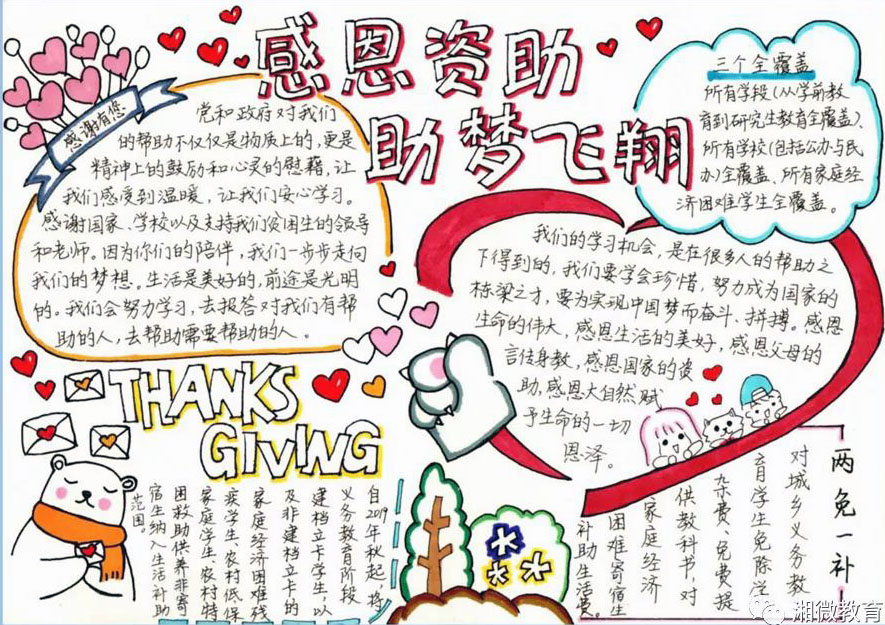 感恩资助
助梦飞翔
感谢有您
党和政府对我们
的帮助不仅仅是物质上的,更是
精神上的鼓励和心灵的慰藉,让
我们感受到温暖,让我们安心学习。
感谢国家、学校以及支持我们贫困生的领导
和老师。因为你们的陪伴,我们一步步走向
我们的梦想。生活是美好的,前途是光明
的。我们会努力学习,去报答对我们有帮
助的人,去帮助需要帮助的人。
三个全覆盖
所有学段(从学前教
育到研究生教育全覆盖)、
所有学校(包括公办与民
办)全覆盖、所有家庭经
济困难学生全覆盖。
我们的学习机会,是在很多人的帮助之
下得到的,我们要学会珍惜,努力成为国家的
栋梁之才,要为实现中国梦而奋斗、拼搏。感恩
生命的伟大,感恩生活的美好,感恩父母的
言传身教,感恩国家的资
助,感恩大自然赋
予生命的一切
恩泽。
THANKS
GIVING
自2019年秋起,将
义务教育阶段
建档立卡学生,以
及非建档立卡的
家庭经济困难残
疾学生、农村低保
家庭学生、农村特
困救助供养非寄
宿生纳入生活补助
范围。
两免一补!
对城乡义务教
育学生免除学
杂费、免费提
供教科书,对
家庭经济
困难寄宿生
补助生活费。
湘微教育